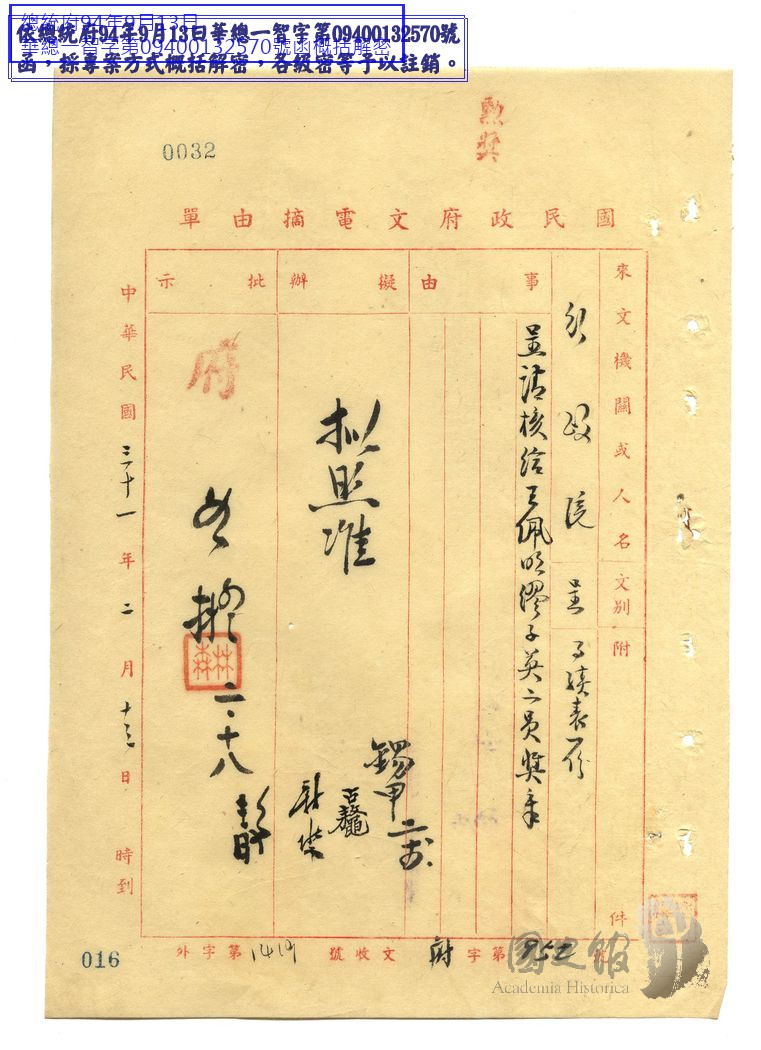 總統府94年9月13日
華總一智字第09400132570號函概括解密
依總統府94年9月13日華總一智字第09400132570號
函，採專案方式概括解密，各級密等予以註銷。
勲獎
0032
國民政府文電摘由單
來文機關或人名
文別
附件
行政院
呈
事績表一份
事由
呈請核給王佩明繆子英二員獎章
擬辦
拟照准
批示
府
如擬
林森
二、十八
中華民國三十一年二月十三日時到
府字第852號
收文號
第1419
字外
016
國史館
Academia Historica